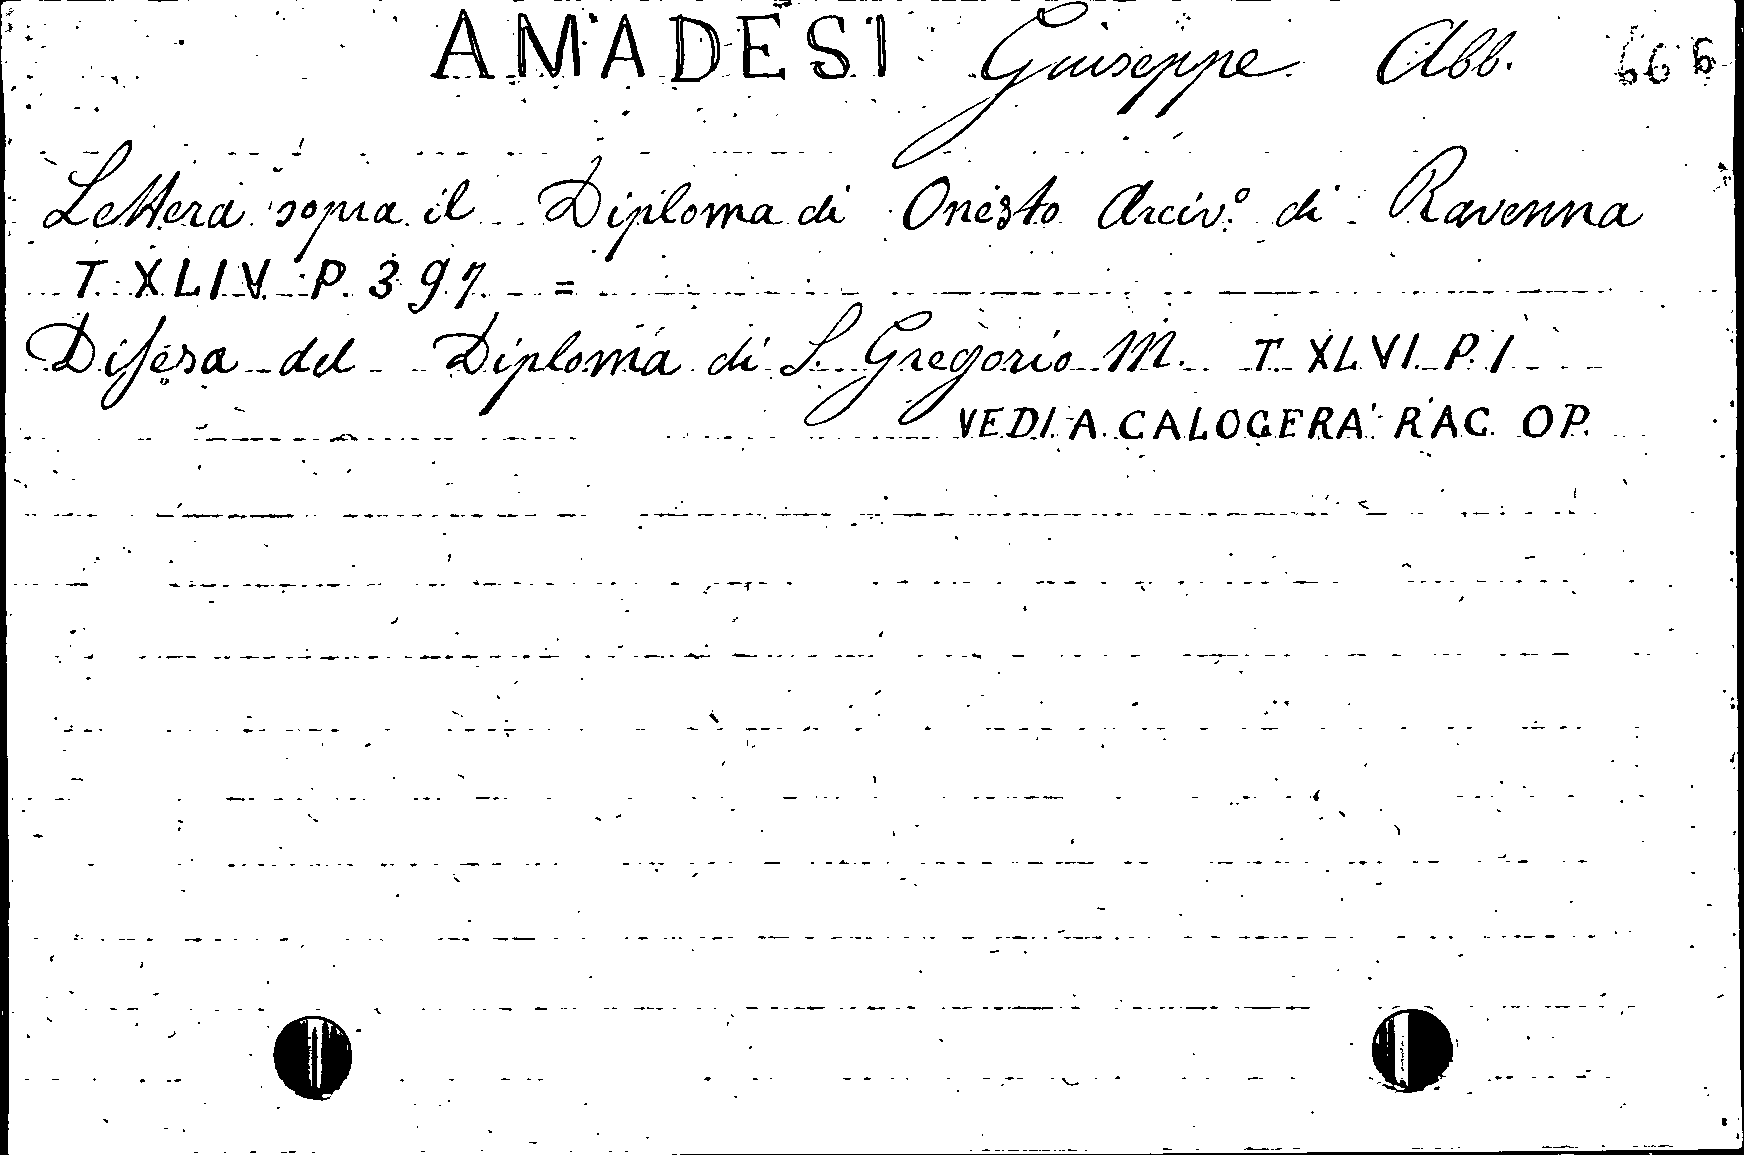 AMADESI Giuseppe Abb. 666
Lettera sopra il Diploma di Onesto Arciv.º di Ravenna
T. XLIV P. 397. =
Difesa del Diploma di S. Gregorio M. T. XLVI. P. I
VEDI A. CALOGERÀ RAC. OP.